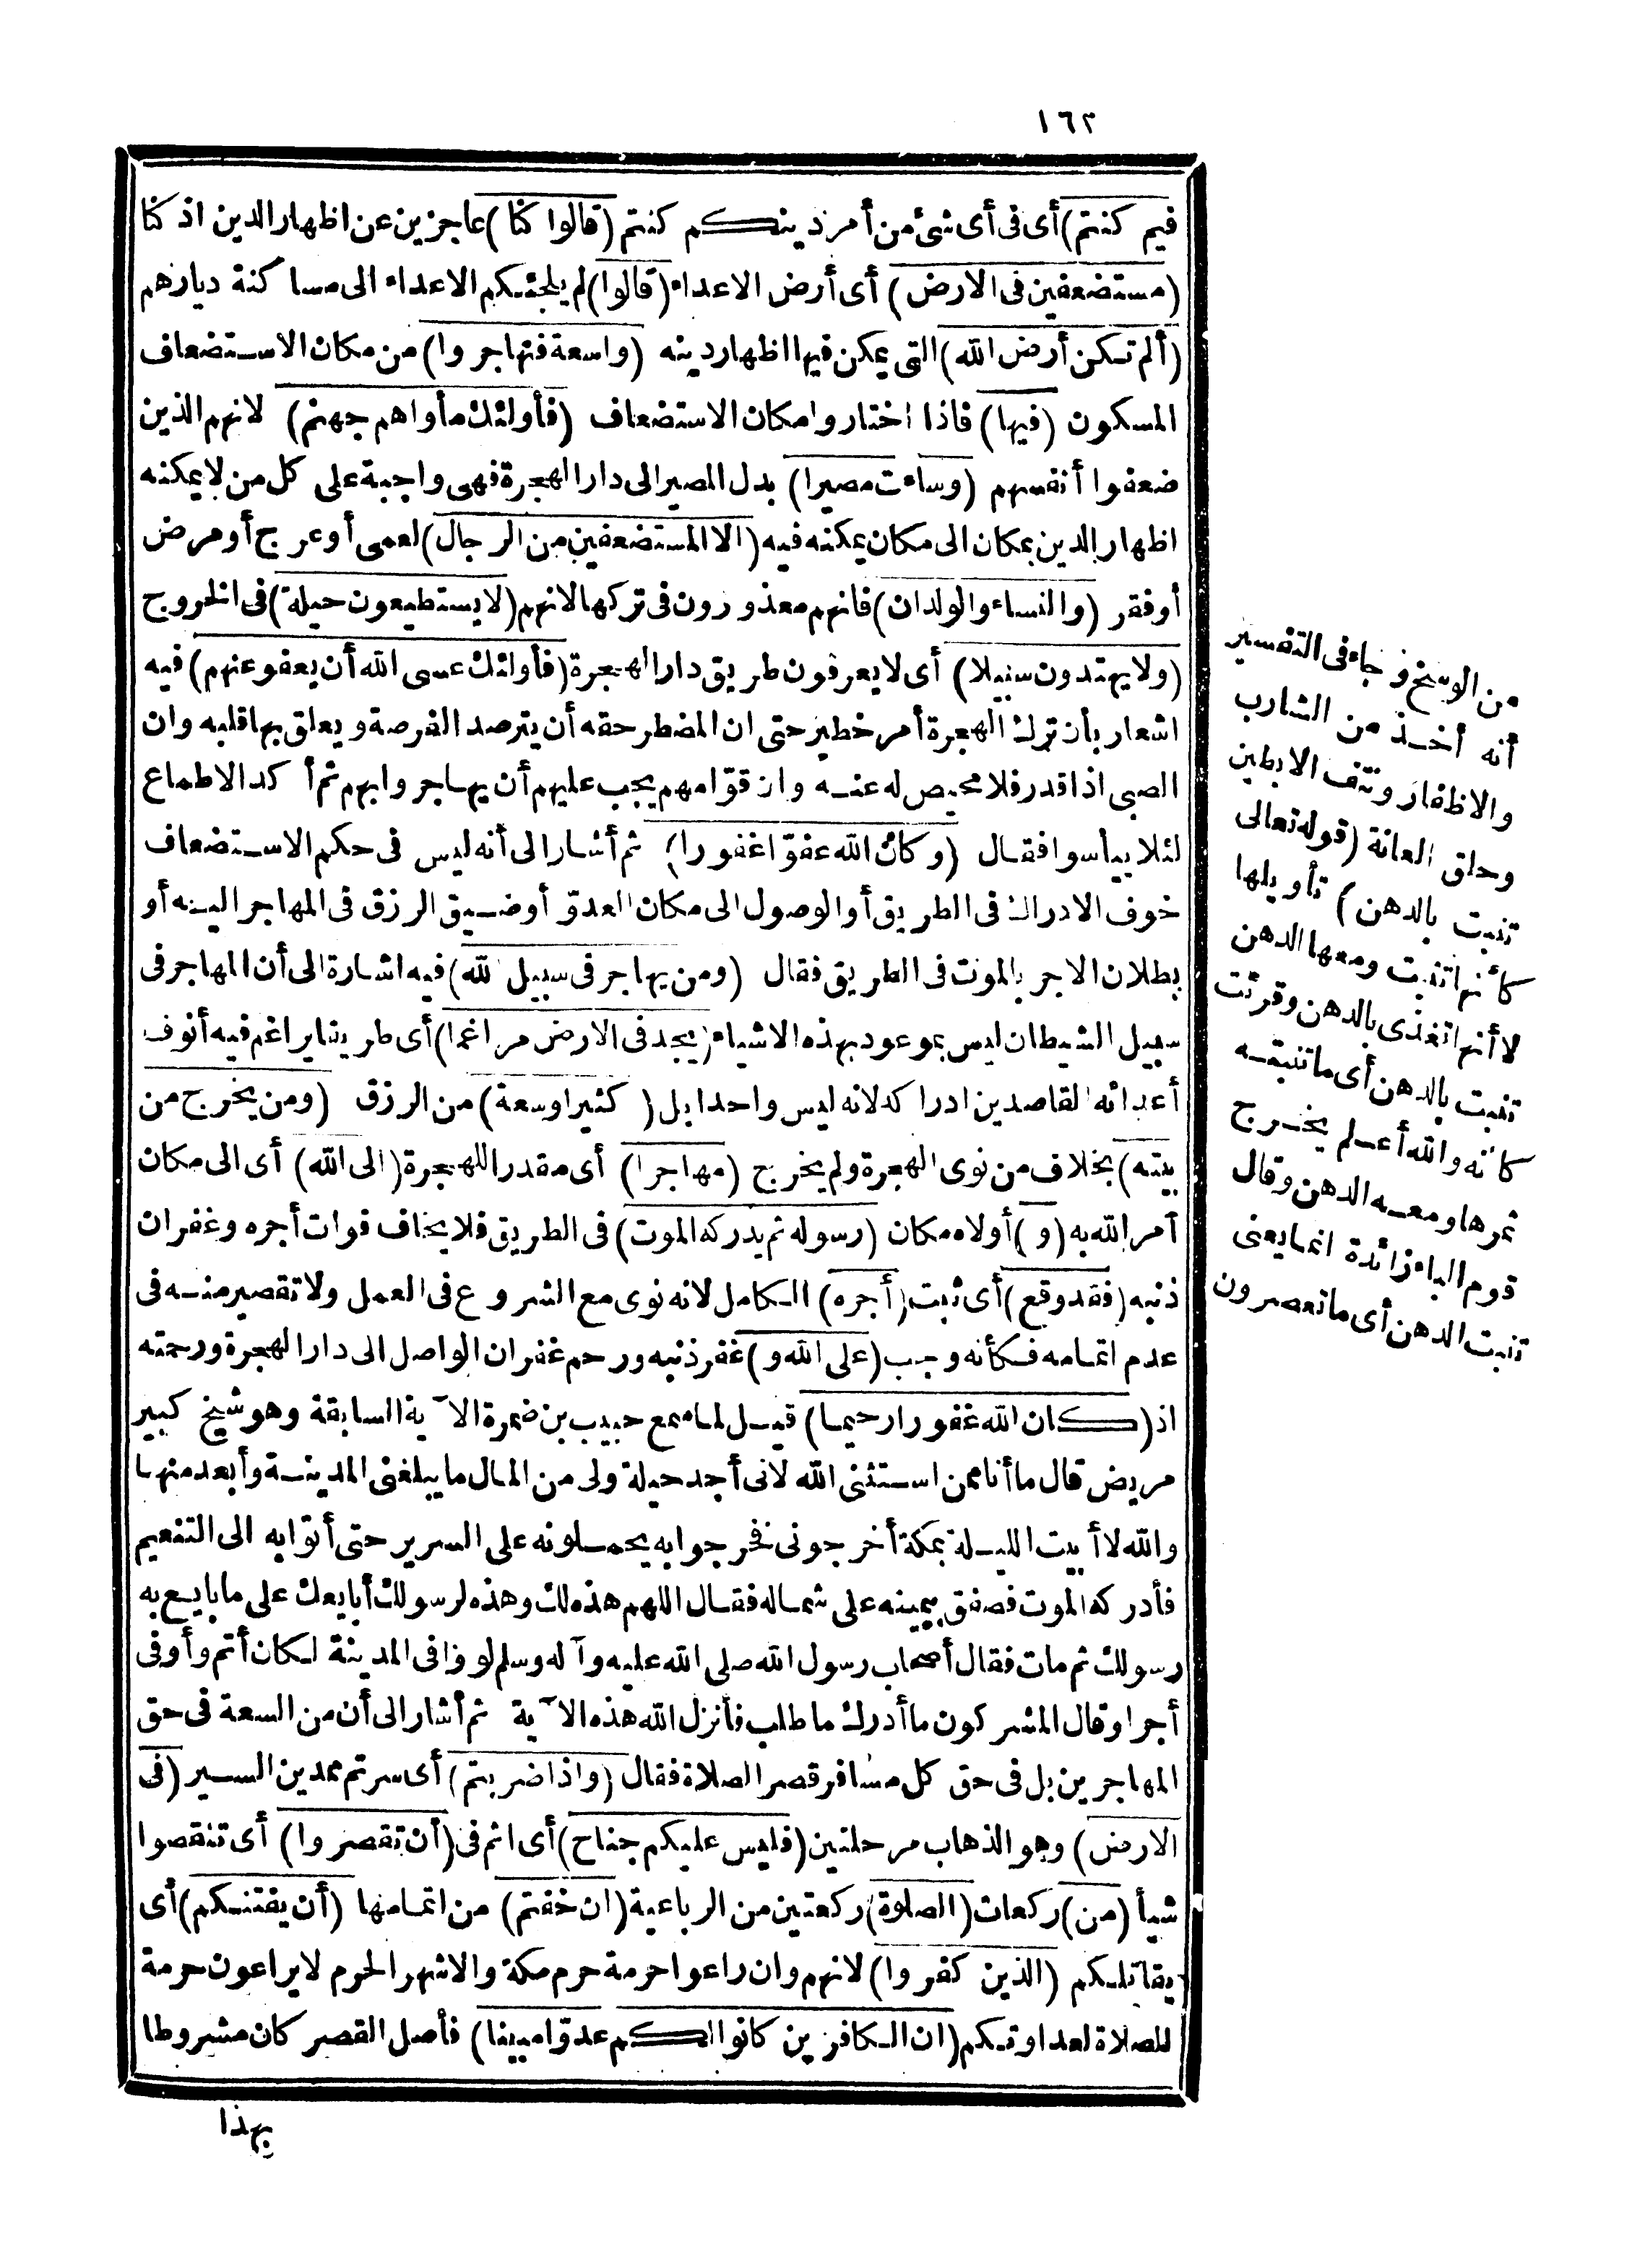 ١٦٢
فيم كنتم) أى فى أى شئ من أمر دينكم كنتم (قالوا كنا) عاجزين عن اظهار الدين اذ كنا
(مستضعفين فى الارض) أى أرض الاعداء (قالوا) لم يلجئكم الاعداء الى مساكنة ديارهم
(ألم تكن أرض الله) التى يمكن فيها اظهار دينه (واسعة فتهاجروا) من مكان الاستضعاف
المسكون (فيها) فاذا اختاروا مكان الاستضعاف (فأولئك مأواهم جهنم) لانهم الذين
ضعفوا أنفسهم (وساءت مصيرا) بدل المصير الى دار الهجرة فهى واجبة على كل من لا يمكنه
اظهار الدين بمكان الى مكان يمكنه فيه (الا المستضعفين من الرجال) لعمى أو عرج أو مرض
أو فقر (والنساء والولدان) فانهم معذورون فى تركها لانهم (لا يستطيعون حيلة) فى الخروج
(ولا يهتدون سبيلا) أى لا يعرفون طريق دار الهجرة (فأولئك عسى الله أن يعفو عنهم) فيه
اشعار بأن ترك الهجرة أمر خطير حتى ان المضطر حقه أن يترصد الفرصة ويعلق بها قلبه وان
الصبى اذا قدر فلا محيص له عنه وان قوّامهم يجب عليهم أن يهاجروا بهم ثم أكد الاطماع
لئلا ييأسوا فقال (وكان الله عفوّا غفورا) ثم أشار الى أنه ليس فى حكم الاستضعاف
خوف الادراك فى الطريق أو الوصول الى مكان العدوّ أو ضيق الرزق فى المهاجر اليه أو
بطلان الاجر بالموت فى الطريق فقال (ومن يهاجر فى سبيل الله) فيه اشارة الى أن المهاجر فى
سبيل الشيطان ليس بموعود بهذه الاشياء (يجد فى الارض مراغما) أى طريقا يراغم فيه أنوف
أعدائه القاصدين ادراكه لانه ليس واحدا بل (كثيرا وسعة) من الرزق (ومن يخرج من
بيته) بخلاف من نوى الهجرة ولم يخرج (مهاجرا) أى مقدرا للهجرة (الى الله) أى الى مكان
أمر الله به (و) أولاه مكان (رسوله ثم يدركه الموت) فى الطريق فلا يخاف فوات أجره وغفران
ذنبه (فقد وقع) أى ثبت (أجره) الكامل لانه نوى مع الشروع فى العمل ولا تقصير منه فى
عدم اتمامه فكأنه وجب (على الله و) غفر ذنبه ورحم غفران الواصل الى دار الهجرة ورحمته
اذ (كان الله غفورا رحيما) قيل لما سمع حبيب بن ضمرة الآية السابقة وهو شيخ كبير
مريض قال ما أنا ممن استثنى الله لانى أجد حيلة ولى من المال ما يبلغنى المدينة وأبعد منها
والله لا أبيت الليلة بمكة أخرجونى فخرجوا به يحملونه على السرير حتى أتوا به الى التنعيم
فأدركه الموت فصفق بيمينه على شماله فقال اللهم هذه لك وهذه لرسولك أبايعك على ما بايع به
رسولك ثم مات فقال أصحاب رسول الله صلى الله عليه وآله وسلم لو وافى المدينة لكان أتم وأوفى
أجرا وقال المشركون ما أدرك ما طلب فأنزل الله هذه الآية ثم أشار الى أن من السعة فى حق
المهاجرين بل فى حق كل مسافر قصر الصلاة فقال (واذا ضربتم) أى سرتم ممدين السير (فى
الارض) وهو الذهاب مرحلتين (فليس عليكم جناح) أى اثم فى (أن تقصروا) أى تنقصوا
شيأ (من) ركعات (الصلوة) ركعتين من الرباعية (ان خفتم) من اتمامها (أن يفتنكم) أى
يقاتلكم (الذين كفروا) لانهم وان راعوا حرمة حرم مكة والاشهر الحرم لا يراعون حرمة
للصلاة لعداوتكم (ان الكافرين كانوا لكم عدوّا مبينا) فأصل القصر كان مشروطا
بهذا
من الوسخ وجاء فى التفسير
أنه أخذ من الشارب
والاظفار ونتف الابطين
وحلق العانة (قوله تعالى
تنبت بالدهن) تأويلها
كأنها تنبت ومعها الدهن
لا أنها تغذى بالدهن وقرئت
تنبت بالدهن أى ما تنبته
كأنه والله أعلم يخرج
ثمرها ومعه الدهن وقال
قوم الباء زائدة انما يعنى
تنبت الدهن أى ما تعصرون